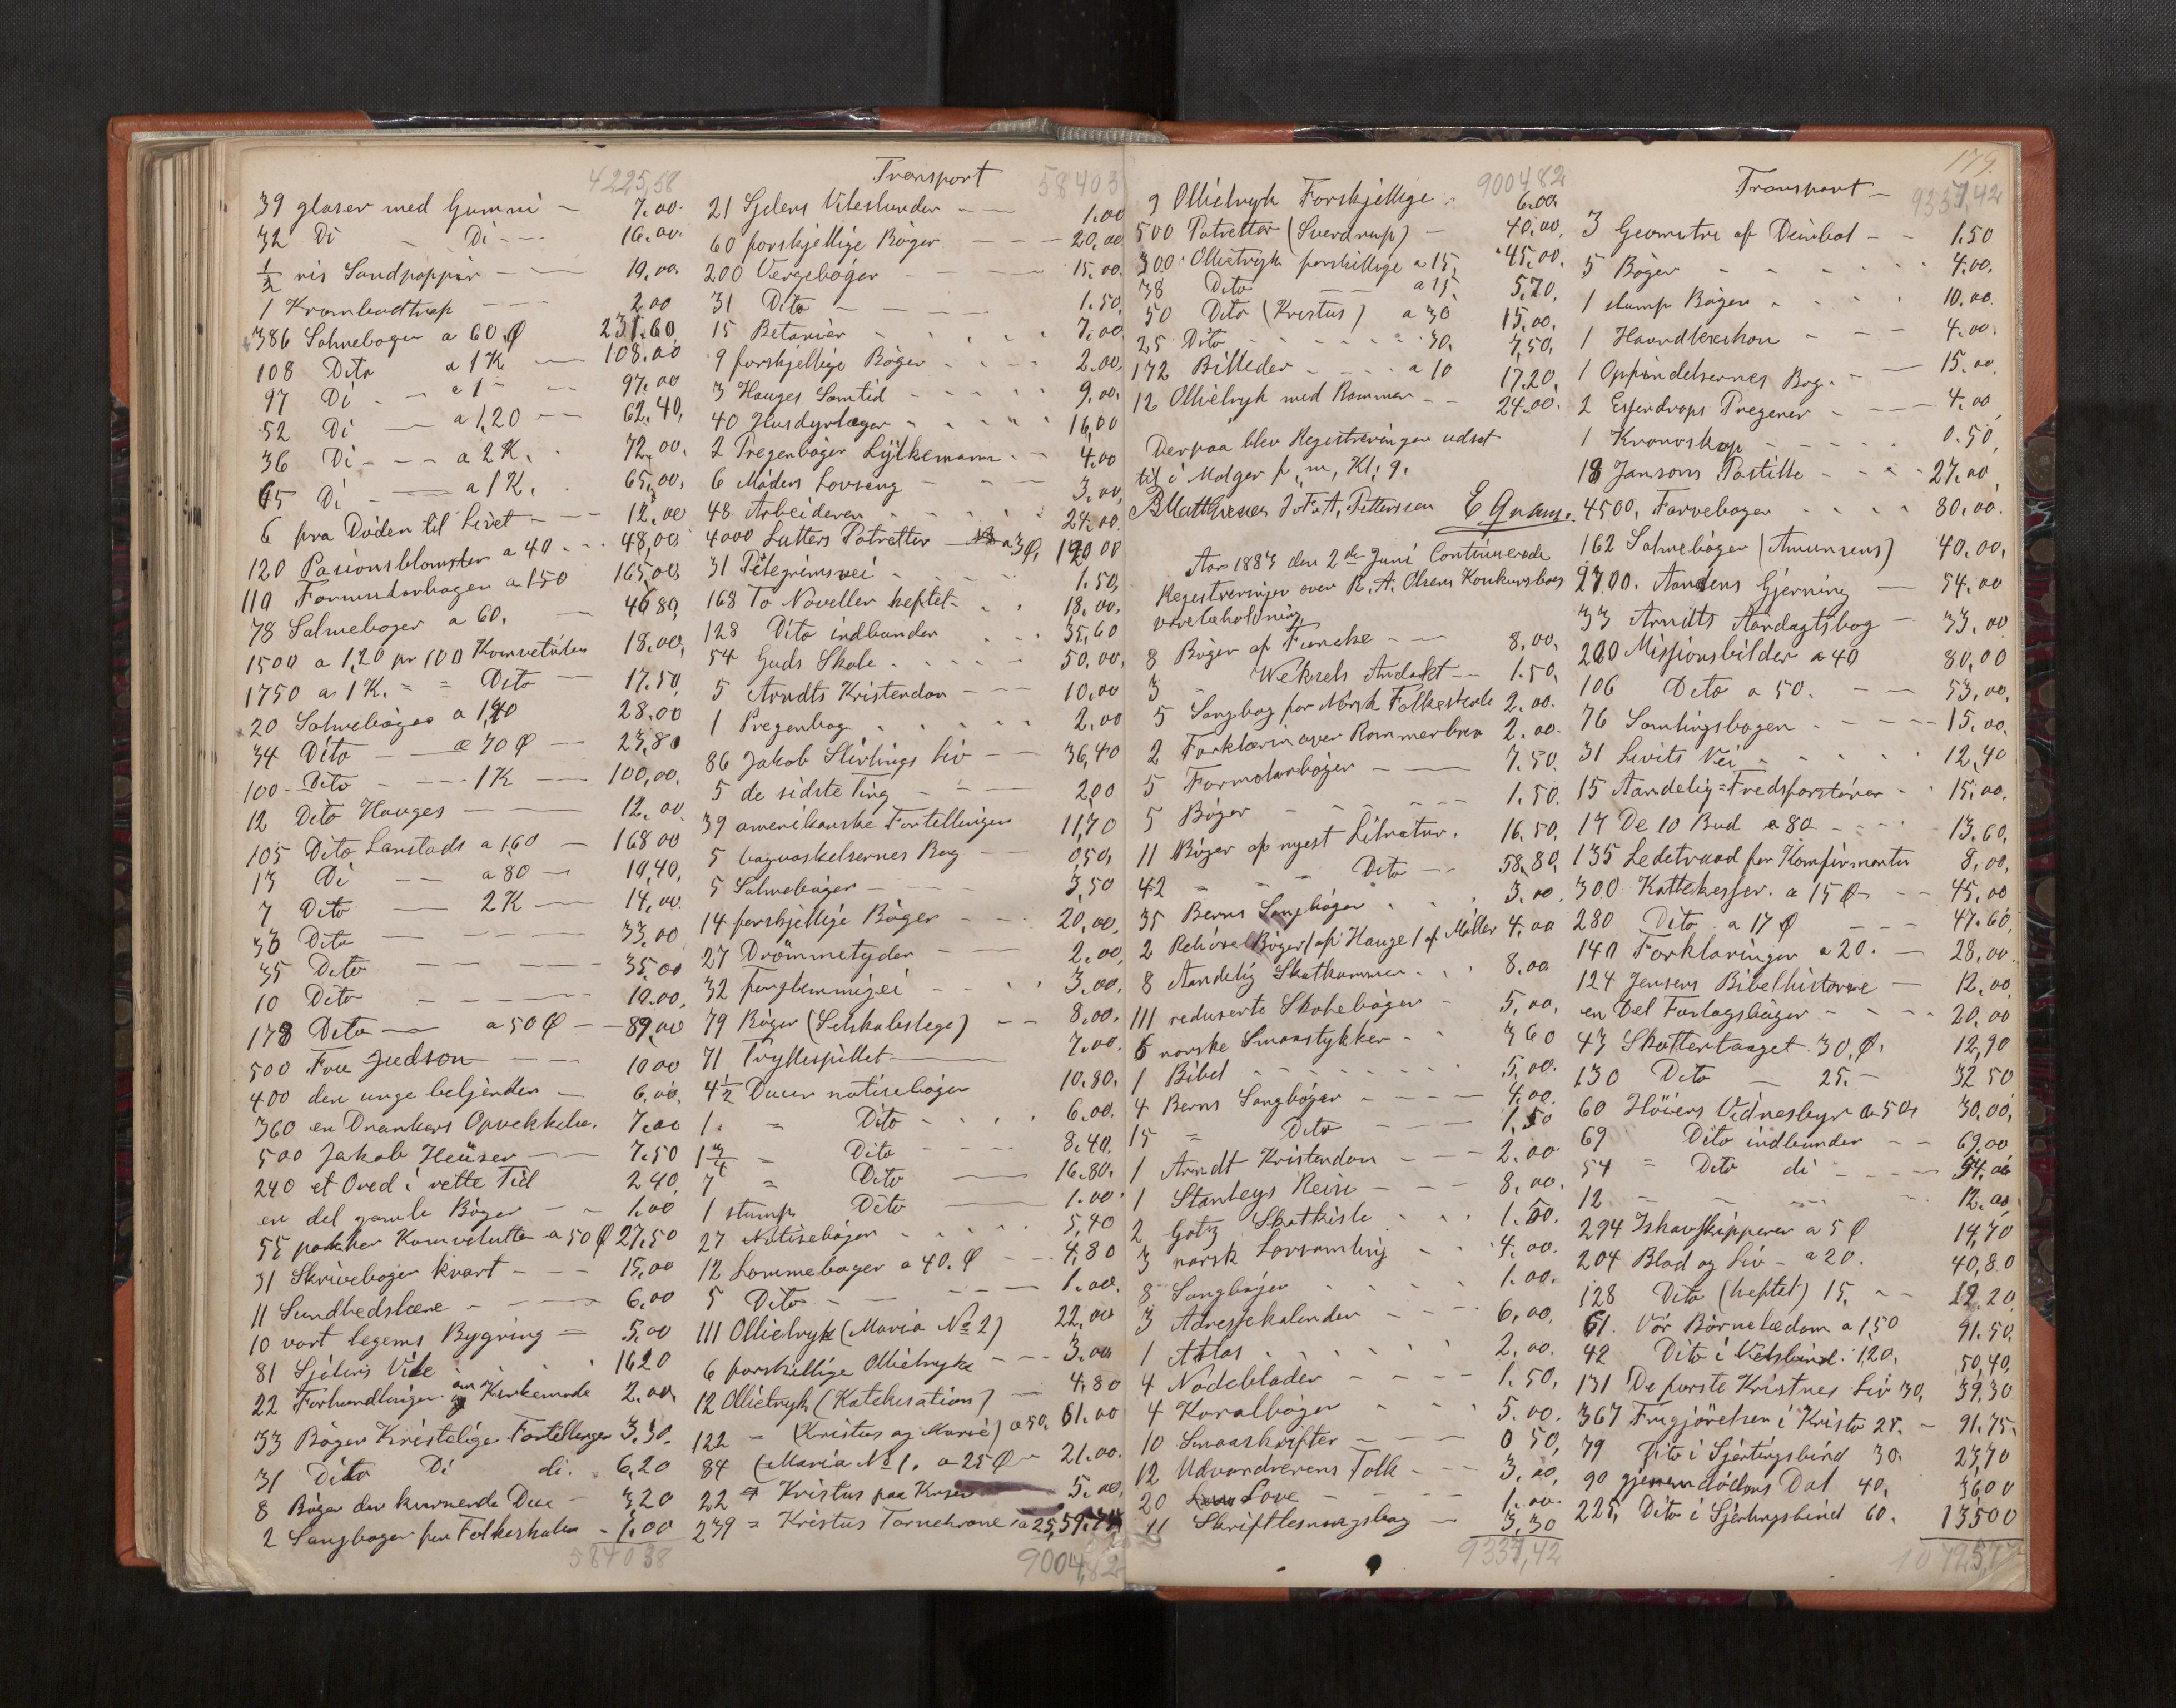 4225,58
39 glaser med Gummi — 7.00.
32 Di - Di - - - 16.00.
½ ris Sandpappir — 19.00.
1 Krambodtrap - - - 2.00
386 Salmeboger a 60 Ø 231.60.
108 Dito a 1 K — 108.00
97 Di - - a 1 - - - 97.00
52 Di — a 1,20 - - 62.40,
36 Di - - - a 2 K. 72.00.
65 Di - — a 1 K. 65,00,
6 fra Døden til Livet - - - 12.00
120 Pasionsblomster a 40 - - - 48,00
110 Formularbogen a 150 165,00,
78 Salmeboger a 60. — 46 80,
1500 a 1,20 pr 100 Konvetuten 18.00,
1750 a 1 K. = = Dito — 17.50,
20 Salmebøger a 1,40 28.00
34 Dito — a 70 Ø — 23,80
100 - Dito - - - 1 K — 100,00.
12 Dito Hauges — 12.00.
105 Dito Lanstads a 160 — 168 00
13 Di — a 80 — 10,40,
7 Dito — 2 K — 14,00.
33 Dito — - - - 33,00
35 Dito — - - - 35,00
10 Dito - - - - 10.00,
178 Dito — a 50 Ø - - 89,00
500 Frue Judson — - - 10 00
400 den unge betjenden — 6,00,
360 en Drankers Opvekkelse. 7,00
500 Jakob Heuser — 7.50
240 et Oved i rette Tid 2 40,
en del gamle Bøger - - 1,00
55 pakker Konvelutter a 50 Ø 27,50
31 Skriveboger kvart - - - 15,00
11 Sundhedslære - - - 6,00
10 vort legems Bygning = 5,00
81 Sjelens Vile - - - 16 20
22 Forhandlinger om Kirkemøde 2.00,
33 Bøger Kristelige Fortellinger 3,30.
31 Dito Di di. 6,20
8 Bøger den kurrende Due — 3,20
2 Sangboger for Folkeskolen - 1,00
5840 38
Transport
58403
21 Sjelens Vilestunder - — 1.00
60 forskjellige Bøger - - - 20,00.
200 Vergebøger - - - 15.00.
31 Dito - - - 1.50,
15 Betanier - - - - 7,00
9 forskjellige Bøger - - - 2.00,
3 Hauges Samtid - - - - 9.00,
40 Husdyrlæger - - - - 16,00
2 Pregenbøger Lytkemann - - 4.00
6 Møders Lovsang - - - 3,00,
48 Arbeideren - - - - 24.00.
4000 Lutters Potretter — a 3 Ø, 120 00
31 Pilegrimsvei - - - - 1.50,
168 To Noveller heftet - - - 18.00,
128 Dito indbunden - - - 35,60
54 Guds Skole - - - - - 50,00,
5 Arndts Kristendom - - - 10,00
1 Pregenbog - - - - - 2.00
86 Jakob Slivlings Liv — 36,40
5 de sidste Ting - - - 2,00
39 amerikanske Fortellinger 11,70
5 Bog — 0,50,
5 Salmebøger - - - 3,50
14 forskjellige Bøger - - - 20,00,
27 Drømmetyder — - 2,00,
32 forglemmigei - - - - 3,00,
79 Bøger (Selskabslege) - - 8,00.
71 Tryllespillet — 7.00.
4½ Ducin notisebøger 10.80.
1. = Dito - - - - 6.00.
1¾ = Dito — 8.40.
7 = Dito — 16.80.
1 stump Dito — 1.00.
27 Notisebøger - - - - 5,40
12 Lommebøger a 40. Ø - - 4,80
5 Dito - - - - 1.00.
111 Ollietryk (Maria No 2) 22,00
6 forskillige Ollietryk - - - 3.00
12 Ollietryk (Katekesation) — 4,80
122 - (Kristus og Marie) a 50. 61.00
84 (Maria No 1. a 25 Ø - 21.00.
22 = Kristus paa Korset 5.00,
239 = Kristus Tornekrone a 25, 59.75
9004,82
900482
9 Ollietryk Forskjellige - 6.00
500 Potretter (Sverdrup) — 40,00,
300 Ollietryk forskillige a 15, 45,00.
38 Dito — a 15, 5,70,
50 Dito (Kristus) a 30 15,00,
25 Dito - - - - - 30, 7,50,
172 Billeder - - - - a 10 17,20,
12 Ollietryk med Rammer - - 24.00.
Derpaa blev Registreringen udsat
til i Morgen f. m. Kl. 9.
BMatthiesen J. F. A. Pettersson E Qvam.
Aar 1883 den 2de Juni Continuerede
Registreringen over R. A. Olsens Konkursboes
varebeholdning
8 Bøger af Funcke - — 8,00,
3 - Weksels Andakt - - 1.50,
5 Sangbog for Norsk Folkeskole 2.00.
2 Forklaring over Romerbrev 2.00.
5 Formolarbøger — 7.50.
5 Bøger - - - - - 1.50.
11 Bøger af nyest Litratur. 16.50,
42 = = = Dito - 58,80,
35 Berns Sangbøger - - 3.00.
2 Reliøse Bøger 1 af Hauge 1 af Møller 4,00
8 Aandelig Skatkammer - - - 8.00
111 reduserte Skolebøger - 5,00.
6 norske Smaastykker - - 3 60
1 Bibel - - - - - - 5,00.
4 Berns Sangbøger - - - - 4.00.
15 = Dito - - - 1,50
1 Arndt Kristendom - - - 2.00
1 Stanleys Reise - - - 8,00.
2 Gotz Skatkiste - - - 1.50.
3 norsk Lovsamling - - 4,00.
8 Sangbøger - - - - 1.00.
3 Adressekalender - - - - 6,00,
1 Atlas - - - - - 2.00.
4 Nodeblader - - - - 1.50,
4 Koralbøger - - - 5.00.
10 Smaaskrifter - - - 0 50,
12 Udvandrerens Tolk - - - 3,00,
20 Love - - - - 1.00.
11 Skriftlesningsbog — 3,30
9337,42
179.
Transport —
9337,42
3 Geometri af Deinbol - - 1.50
5 Bøger - - - - - - 4.00,
1 stump Bøger - - - - 10.00.
1 Haandlexikon - - - - 4.00.
1 Opfindelsernes Bog. - — 15.00,
2 Esfendrops Pregener - - - 4.00
1 Kronoskop - - - - - 0.50,
18 Jansons Postille - - - - 27.00,
4500, Farvebøger - - - - 80,00.
162 Salmebøger (Amunsens) 40.00,
2700. Aandens Gjerning — 54.00
33 Arndts Aandagtsbog - 33,00
200 Missionsbilder a 40 80,00
106 Dito a 50. - — 53,00,
76 Samlingsbogen - - - - 15,00,
31 Livits Vei - - - - - 12,40
15 Aandelig = Fredsforstører - - 15,00,
17 De 10 Bud a 80 - - - 13.60,
135 Ledetraad for Komfirmanter 8,00,
300 Kattekesser. a 15 Ø - - - 45,00
280 Dito a 17 Ø - - - 47.60,
140 Forklaringer a 20. — 28,00.
124 Jensens Bibelhistorie — 12,00
en Del Forlagsbøger - - - - 20,00
43 Skattertaaget 30 Ø. 12,90
130 Dito — 25. - 32 50
60 Høiers Vidnesbyr a 50, 30,00,
69 Dito indbunden - - 69,00
54 = Dito di - - - - 54.00
12 = - ... 12.00.
294 Ishavsskipperen a 5 Ø 14,70
204 Blod og Liv - a 20. 40,80
128 Dito (heftet) 15. - - 19 20,
61. Vor Børnelædom a 1,50 91.50,
42 Dito i Helsbind. 120. 50,40,
131 De første Kristnes Liv 30, 39,30
367 Frigjørelsen i Kristo 25. - 91.75,
79 Dito i Sjertingsbind 30. 23,70
90 gjenem dødens Dal 40, 36 00
225, Dito i Sjertingsbind 60. 135 00
10725,77